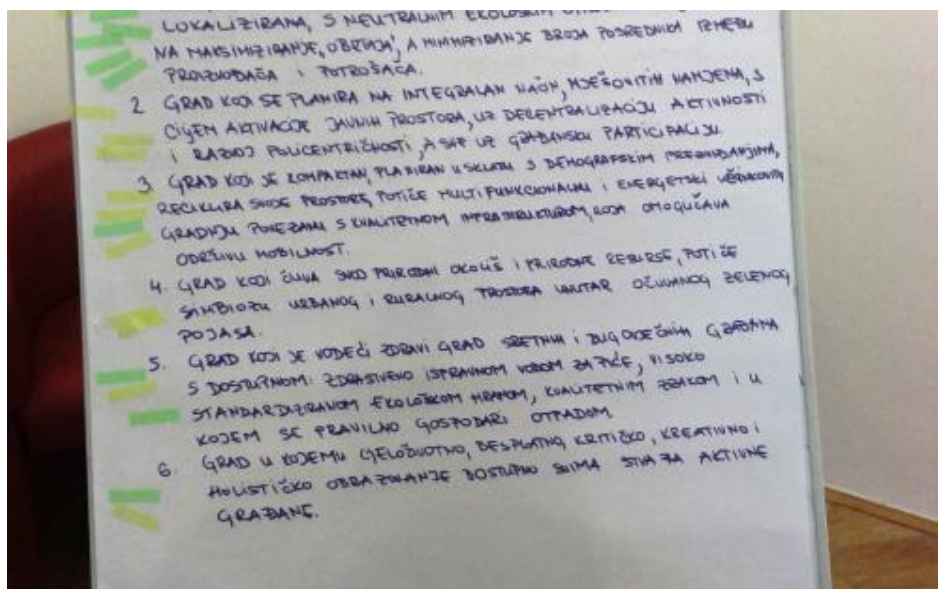 LOKALIZIRANA, S NEUTRALNIM EKOLOŠKIM
NA MAKSIMIZIRANJE, OBRTAJA', A MINIMIZIRANJE BROJA POSREDNIKA IZMEĐU
PROIZVOĐAČA I POTROŠAČA.
2 GRAD KOJI SE PLANIRA NA INTEGRALAN NAČIN, MJEŠOVITIM NAMJENA, S
CILJEM AKTIVACIJE JAVNIH PROSTORA, UZ DECENTRALIZACIJU AKTIVNOSTI
I RAZVOJ POLICENTRIČNOSTI, A SVE UZ GRAĐANSKU PARTICIPACIJU.
3. GRAD KOJI JE KOMPAKTAN, PLANIRAN U SKLADU S DEMOGRAFSKIM PREDVIĐANJIMA,
RECIKLIRA SVOJE PROSTORE, POTIČE MULTIFUNKCIONALNU I ENERGETSKI UČINKOVITU
GRADNJU POVEZANU S KVALITETNOM INFRASTRUKTUROM, KOJA OMOGUĆAVA
ODRŽIVU MOBILNOST.
4. GRAD KOJI ČUVA SVOJ PRIRODNI OKOLIŠ I PRIRODNE RESURSE, POTIČE
SIMBIOZU URBANOG I RURALNOG PROSTORA UNUTAR OČUVANOG ZELENOG
POJASA.
5. GRAD KOJI JE VODEĆI ZDRAVI GRAD SRETNIH I DUGOVJEČNIH GRAĐANA
S DOSTUPNOM: ZDRAVSTVENO ISPRAVNOM VODOM ZA PIĆE, VISOKO
STANDARDIZIRANOM EKOLOŠKOM HRANOM, KVALITETNIM ZRAKOM I U
KOJEM SE PRAVILNO GOSPODARI OTPADOM.
6. GRAD U KOJEMU CJELOŽIVOTNO, BESPLATNO, KRITIČKO, KREATIVNO I
HOLISTIČKO OBRAZOVANJE DOSTUPNO SVIMA STVARA AKTIVNE
GRAĐANE.